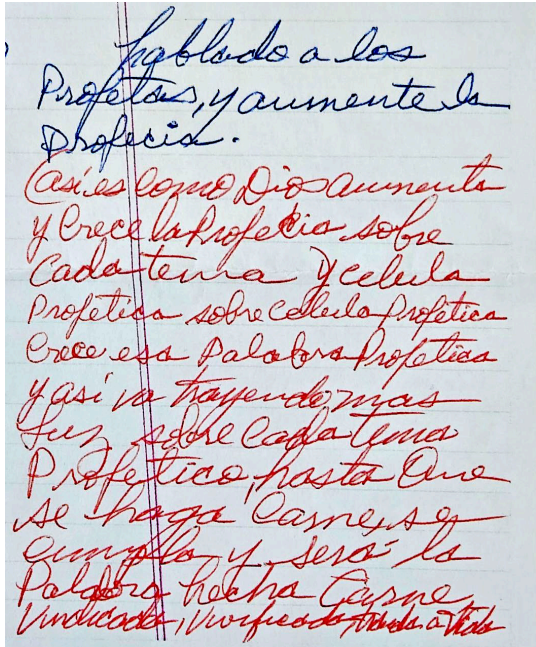 hablado a los
Profetas, y aumente la
profecia.
(así es como Dios aumenta
y Crece la Profecia sobre
Cada tema y celula
Profetica sobre celula Profetica
Crece esa Palabra Profetica
y así va trayendo mas
luz sobre Cada tema
Profetico, hasta Que
se haga Carne, se
cumpla y será la
Palabra hecha Carne,
Vindicada, Vivificada, traida a Vida